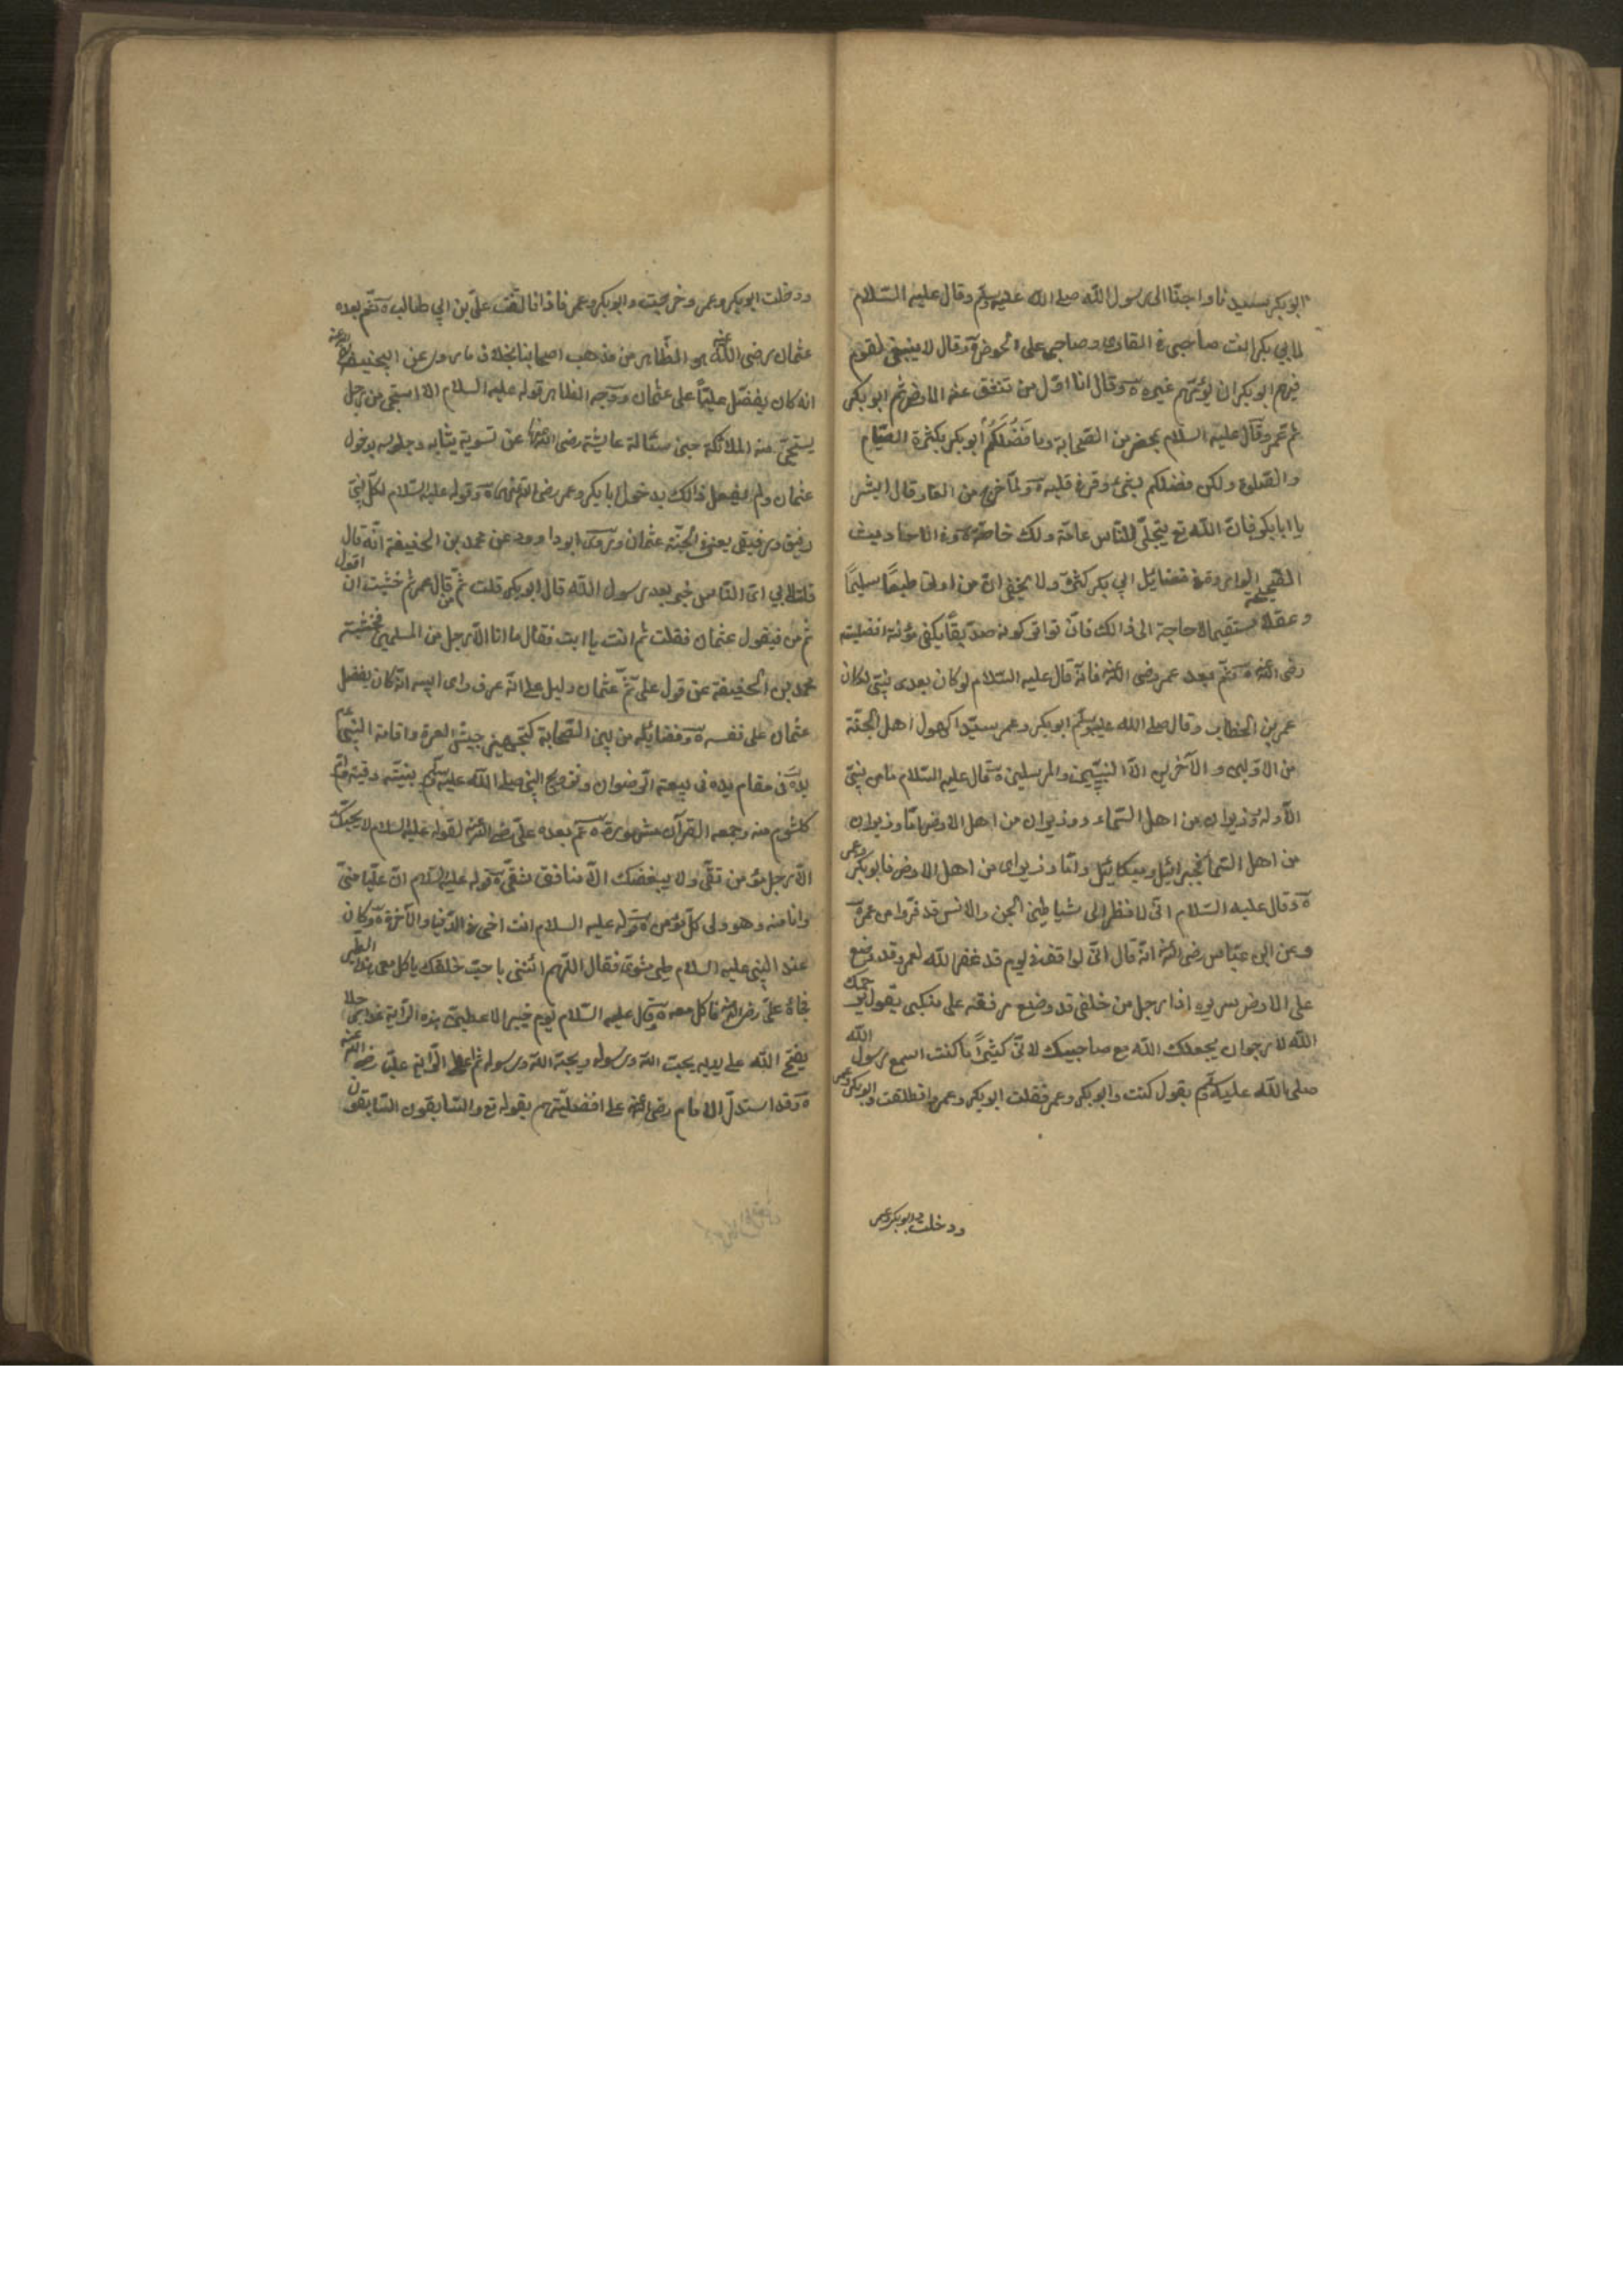 ابو بكر سيدنا واحبنا الى رسول الله صلى الله عليه وسلم وقال عليه السّلام
لابي بكر انت صاحبي في الغار وصاحبي على الحوض ة وقال لا ينبغي لقوم
فيهم ابو بكر ان يؤمّهم غيره ة وقال انا اوّل من تنشق عنه الارض ثم ابو بكر
ثم عمر وقال عليه السلام بمحضر من الصحابة وما فَضُلَكُم ابو بكر بكثرة الصّيام
والصّلوة ولكن فضلكم بشئ وقر في قلبه ة ولمّا خرج من الغار قال ابشر
يا ابا بكر فانّ الله تع يتجلّى للنّاس عامّة ولك خاصّة ة وفي الاحاديث
الصّحيحة الواردة في فضائل ابي بكر كثرة ولا يخفى انّ من اوتي طبعًا سليمًا
وعقلا مستقيما لا حاجة الى ذالك فانّ تواتر كونه صدّيقًا يكفي مؤنة افضليته
رضى الله عنه ة ثم بعده عمر رضى الله عنه فانه قال عليه السّلام لو كان بعدى نبيّ لكان
عمر بن الخطاب وقال صلى الله عليه وسلم ابو بكر وعمر سيّدا كهول اهل الجنّة
من الاوّلين والآخرين الاّ النبيّين والمرسلين ة قال عليه السّلام ما من نبيّ
الاّ وله وزيران من اهل السّماء ووزيران من اهل الارض امّا وزيران
من اهل السّماء فجبرائيل وميكائيل وامّا وزيراى من اهل الارض فابو بكر وعمر
ة وقال عليه السّلام انّى لانظر الى شياطين الجن والانس قد فرّوا من عمر ة
وعن ابن عبّاس رضى الله عنه انّه قال انّى لواقف في قوم قد غفر الله لعمر وقد وضع
على الارض سريره اذا رجل من خلفى قد وضع مرفقه على منكبى يقول يرحمك
الله لارجوان يجعلك الله مع صاحبيك لانّى كثيرًا ما كنت اسمع رسول الله
صلى الله عليه وسلم يقول كنت وابو بكر وعمر فقلت ابو بكر وعمر وانطلقت وابو بكر وعمر
ودخلت وابو بكر وعمر
ودخلت ابو بكر وعمر وخرجت وابو بكر وعمر فاذا انا التفت علىّ بن ابي طالب ة ثم بعده
عثمان رضى الله عنه هو الظّاهر من مذهب اصحابنا بخلاف ما روى عن ابيحنيفة
انه كان يفضّل عليّاً على عثمان ووجه الظاهر قوله عليه السلام الا استحى من رجل
يستحى منه الملائكة حين سئالة عايشة رضى الله عنها عن تسوية ثيابه وجلوسه بدخول
عثمان ولم يفعل ذالك بدخول ابا بكر وعمر رضى الله عنهما ة وقوله عليه السّلام لكلّ نبيّ
رفيق ورفيقى يعنى في الجنّة عثمان وروى ابو داوود عن محمد بن الحنيفة انّه قال
قلت لابي اىّ النّاس خير بعد رسول الله قال ابو بكر قلت ثمّ من قال عمر ثم خشيت ان اقول
ثم من فيقول عثمان فقلت ثم انت يا ابت فقال ما انا الاّ رجل من المسلمين فخشية
محمد بن الحنيفة عن قول علىّ ثمّ عثمان دليل على انّه عرف راى ابيه انّه كان يفضل
عثمان على نفسه ة وفضايله من بين الصّحابة كتجهيز جيش العسرة واقامة النبي عم
يده في مقام يده فى بيعة الرّضوان وتزويج النبى صلى الله عليه وسلم بنيّته رقيّة وامّ
كلثوم منه وجمعه القرآن مشهورة ة ثم بعده علىّ رضى الله عنه لقوله عليه السلام لا يحبّك
الاّ رجل مؤمن تقىّ ولا يبغضك الاّ منافق شقىّ ة قوله عليه السلام انّ عليّا منّى
وانا منه وهو ولى كلّ مؤمن ة قوله عليه السلام انت اخى فى الدّنيا والآخرة ة وكان
عند النبى عليه السلام طير مشوىّ فقال اللّهم ائتنى باحبّ خلقك ياكل معى هذا الطّير
فجاءه علىّ رضى الله عنه فاكل معه ة قال عليه السّلام يوم خيبر لاعطينّ هذه الرّاية غدا رجلا
يفتح الله على يديه يحبّ الله ورسوله ويحبّه الله ورسوله ثم اعطى الرّاية عليّا رضى الله عنه
ة وقد استدلّ الامام رضى الله عنه على افضليّتهم بقوله تع والسّابقون السّابقون